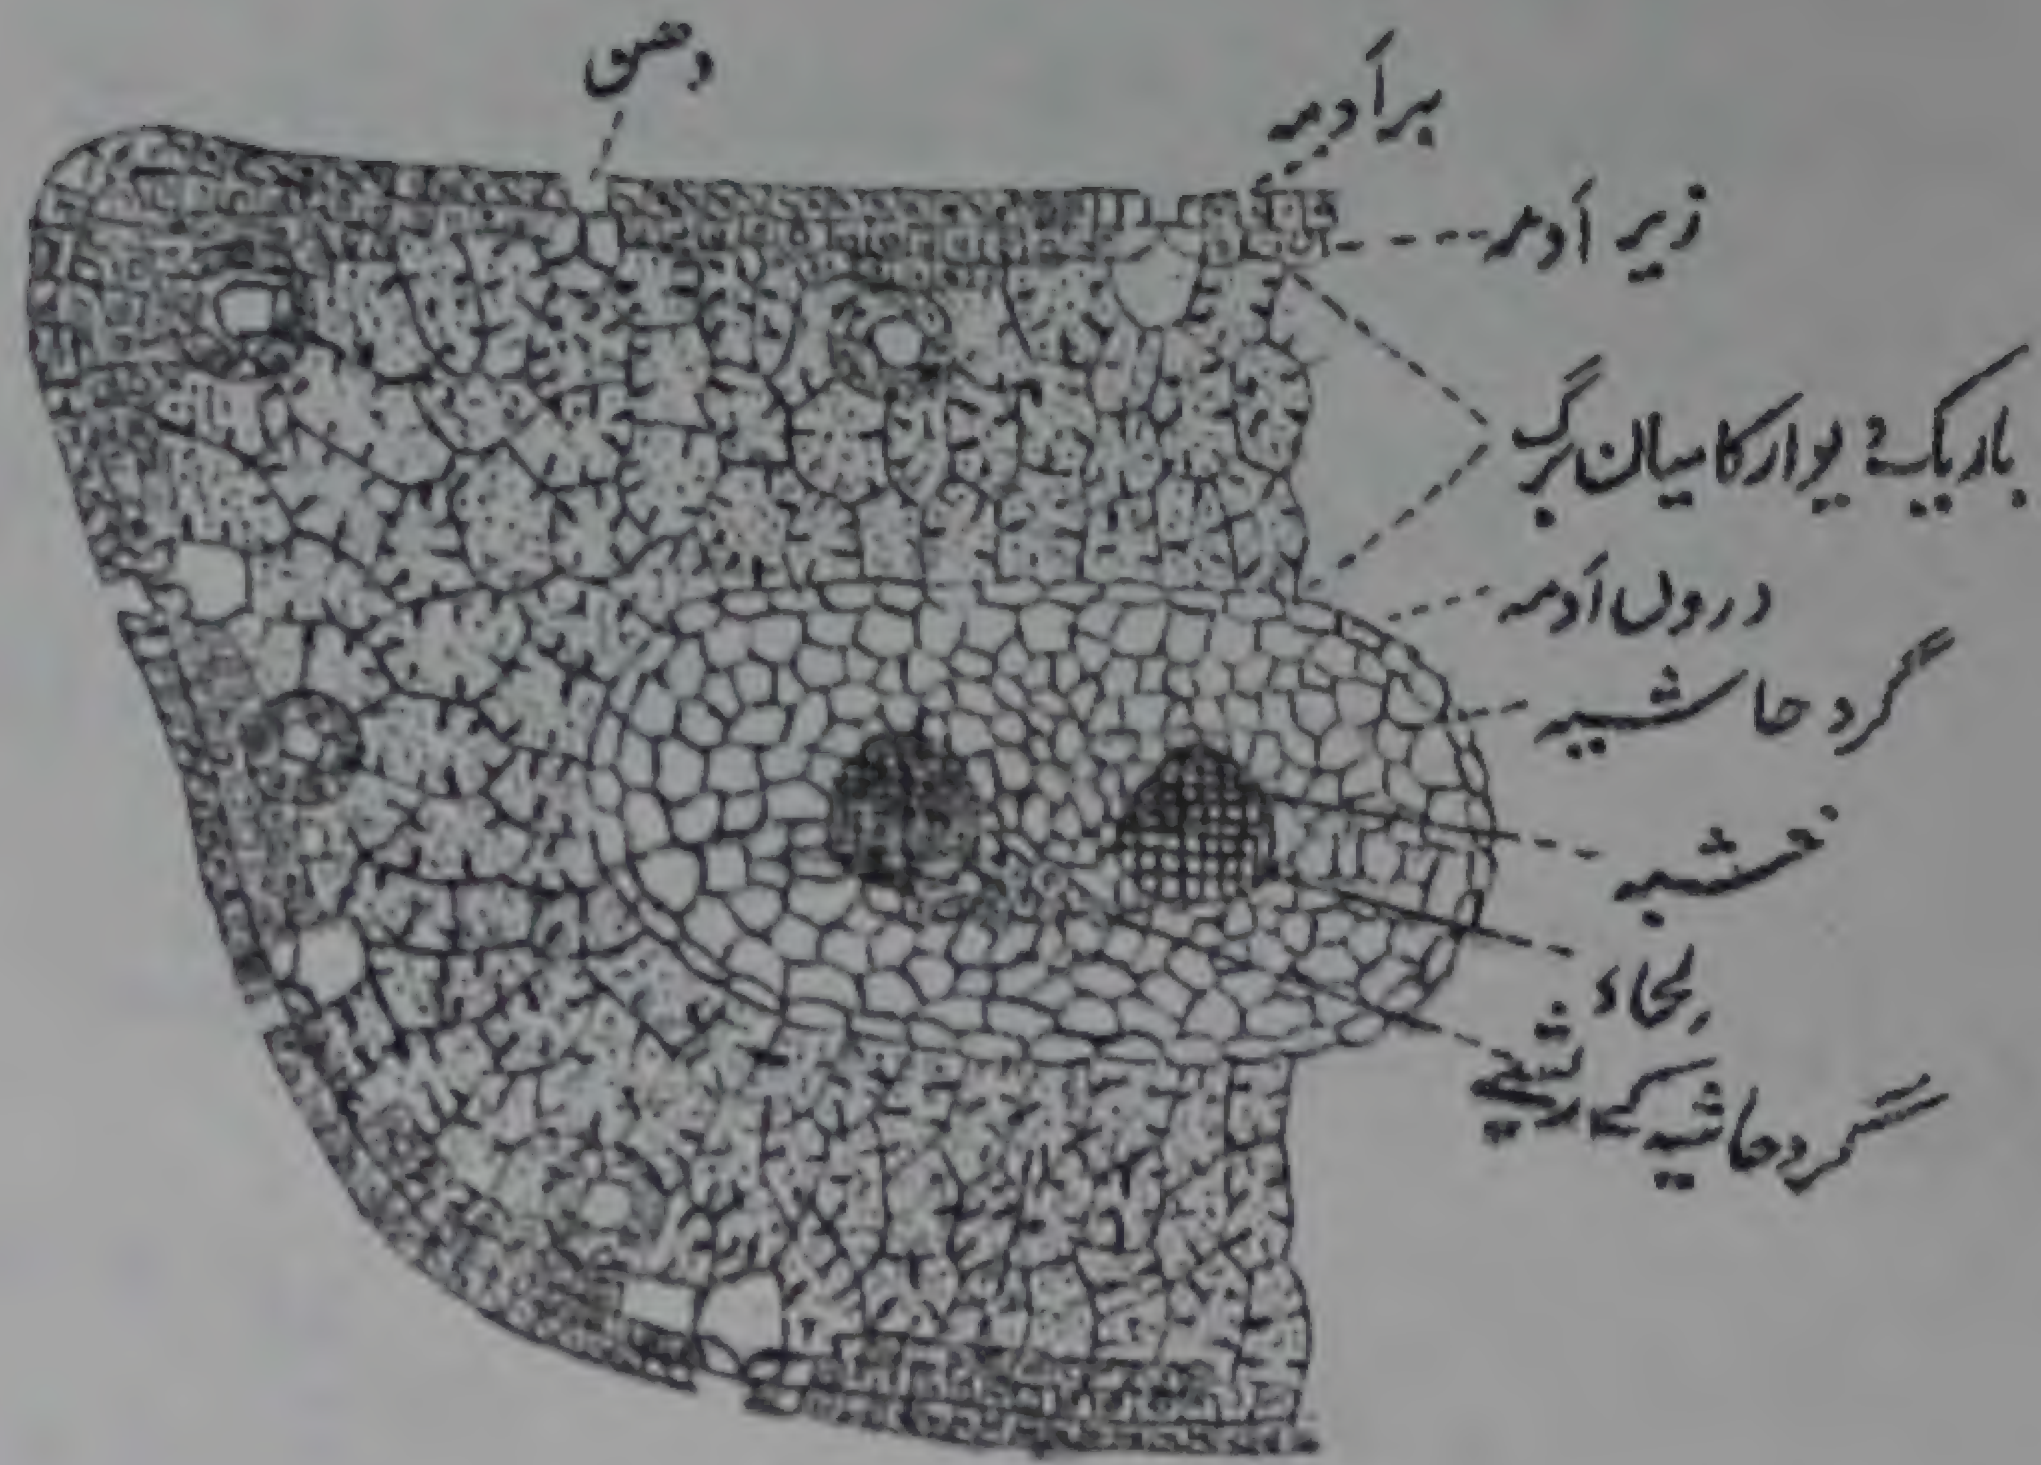 دهن
بر اَدمہ
زیر اَدمہ
باریک دیوار کا میان برگ
دروں اَدمہ
گرد حاشیہ
خشبہ
لحاء
گرد حاشیہ کے ریشے